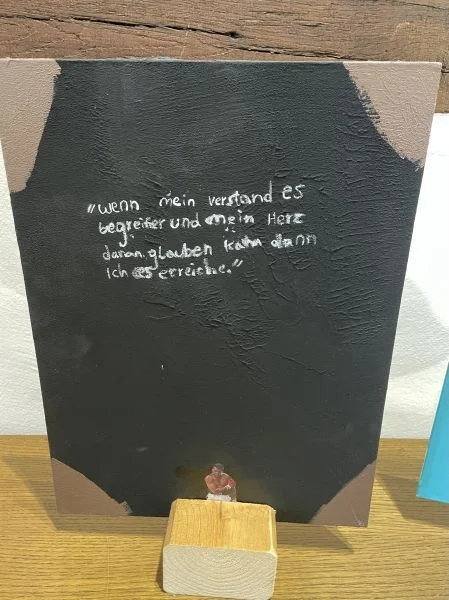 "wenn mein verstand es
begreifer und mein Herz
daran glauben kahn dann
ich es erreiche."